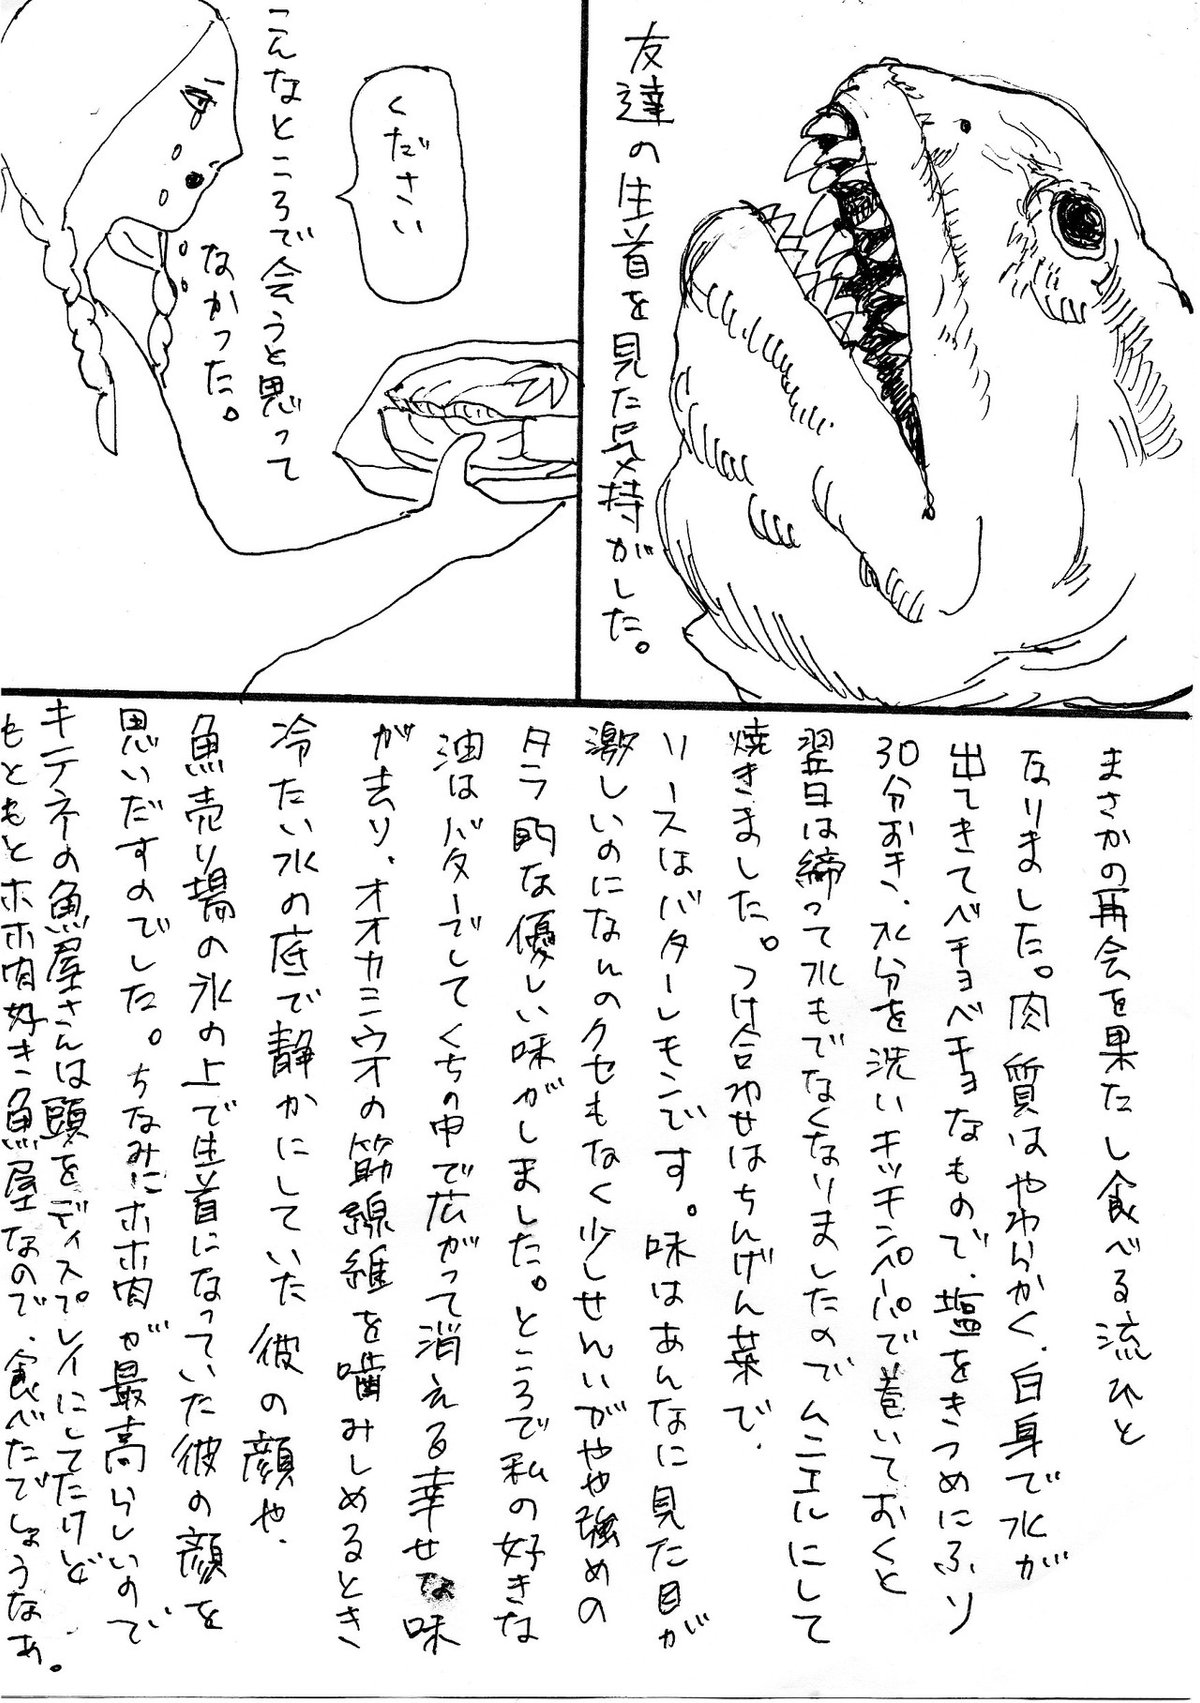 友達の生首を見た気持がした。
ください
こんなところで会うと思って
なかった。
まさかの再会を果たし食べる流れと
なりました。肉質はやわらかく、白身で水が
出てきてベチョベチョなもので、塩をきつめにふり
30分おき、水分を洗いキッチンペーパーで巻いておくと
翌日は締って水もでなくなりましたのでムニエルにして
焼きました。つけ合わせはちんげん菜で、
ソースはバターレモンです。味はあんなに見た目が
激しいのになんのクセもなく少しせんいがやや強めの
タラ的な優しい味がしました。ところで私の好きな
油はバターでしてくちの中で広がって消える幸せな味
が去り、オオカミウオの筋線維を噛みしめるとき
冷たい水の底で静かにしていた彼の顔や、
魚売り場の氷の上で生首になっていた彼の顔を
思いだすのでした。ちなみにホホ肉が最高らしいので
キテネーの魚屋さんは頭をディスプレイにしてたけど
もともとホホ肉好き魚屋なので、食べたでしょうなぁ。